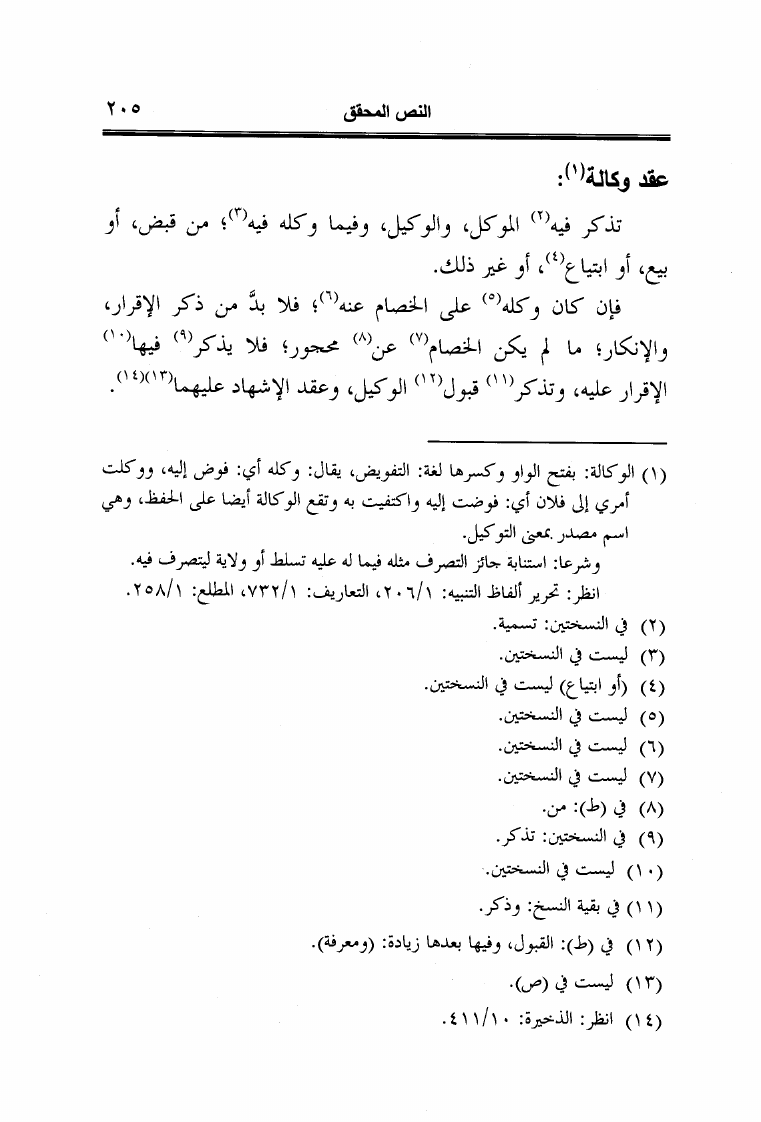 النص المحقق ٢٠٥
عقد وكالة(١):
تذكر فيه(٢) الموكل، والوكيل، وفيما وكله فيه(٣)؛ من قبض، أو
بيع، أو ابتياع(٤)، أو غير ذلك.
فإن كان وكله(٥) على الخصام عنه(٦)؛ فلا بدَّ من ذكر الإقرار،
والإنكار؛ ما لم يكن الخصام(٧) عن(٨) محجور؛ فلا يذكر(٩) فيها(١٠)
الإقرار عليه، وتذكر(١١) قبول(١٢) الوكيل، وعقد الإشهاد عليهما(١٣)(١٤).
(١) الوكالة: بفتح الواو وكسرها لغة: التفويض، يقال: وكله أي: فوض إليه، ووكلت
أمري إلى فلان أي: فوضت إليه واكتفيت به وتقع الوكالة أيضا على الحفظ، وهي
اسم مصدر بمعنى التوكيل.
وشرعا: استنابة جائز التصرف مثله فيما له عليه تسلط أو ولاية ليتصرف فيه.
انظر: تحرير ألفاظ التنبيه: ٢٠٦/١، التعاريف: ٧٣٢/١، المطلع: ٢٥٨/١.
(٢) في النسختين: تسمية.
(٣) ليست في النسختين.
(٤) (أو ابتياع) ليست في النسختين.
(٥) ليست في النسختين.
(٦) ليست في النسختين.
(٧) ليست في النسختين.
(٨) في (ط): من.
(٩) في النسختين: تذكر.
(١٠) ليست في النسختين.
(١١) في بقية النسخ: وذكر.
(١٢) في (ط): القبول، وفيها بعدها زيادة: (ومعرفة).
(١٣) ليست في (ص).
(١٤) انظر: الذخيرة: ٤١١/١٠.